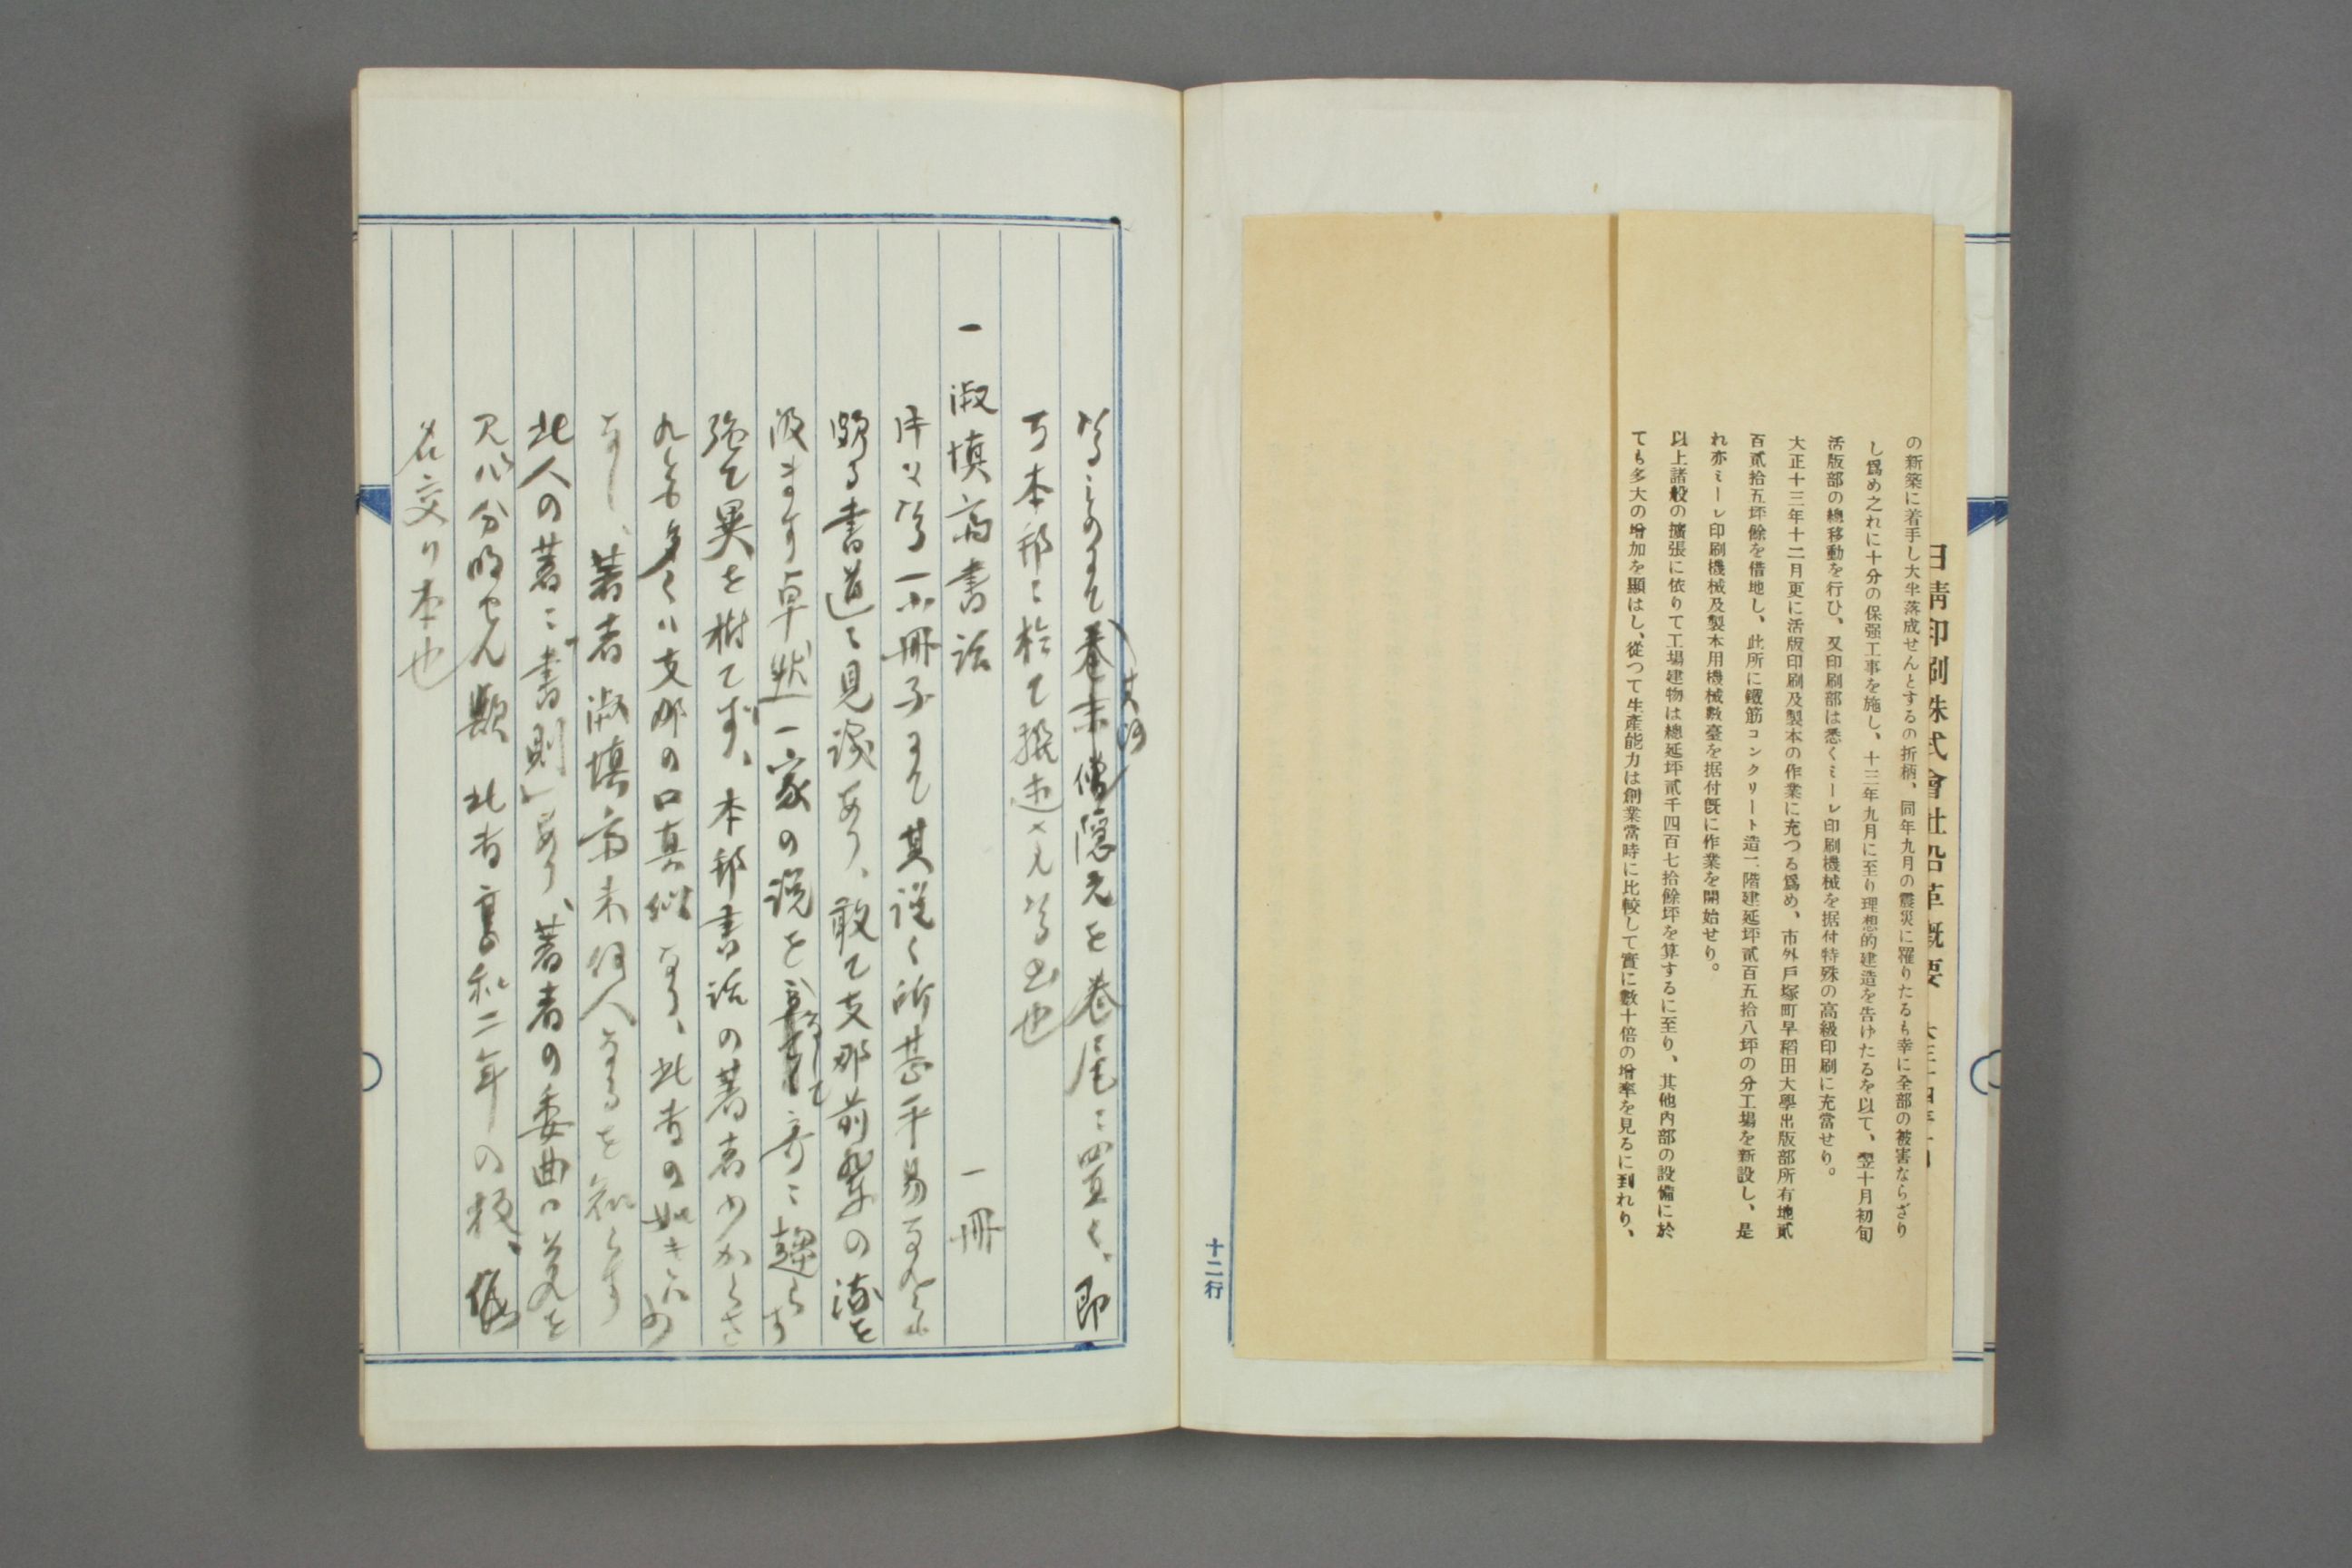 日淸印刷株式會社沿革槪要
の新築に着手し大半落成せんとするの折柄、同年九月の震災に罹りたるも幸に全部の被害ならざり
し爲め之れに十分の保强工事を施し、十三年九月に至り理想的建造を告けたるを以て、翌十月初旬
活版部の總移動を行ひ、又印刷部は悉くミーレ印刷機械を据付特殊の高級印刷に充當せり。
大正十三年十二月更に活版印刷及製本の作業に充つる爲め、市外戶塚町早稻田大學出版部所有地貳
百貳拾五坪餘を借地し、此所に鐵筋コンクリート造二階建延坪貳百五拾八坪の分工場を新設し、是
れ亦ミーレ印刷機械及製本用機械數臺を据付旣に作業を開始せり。
以上諸般の擴張に依りて工場建物は總延坪貳千四百七拾餘坪を算するに至り、其他內部の設備に於
ても多大の增加を顯はし、從つて生產能力は創業當時に比較して實に數十倍の增率を見るに到れり、
十二行
卷末僧隱元を卷尾ニ置く、即
本邦ニ於て撰述 也
一 淑慎齋書話 一冊
一小冊子 其說く所甚平易
頗る書道ニ見識あり、敢て支那前輩の流を
汲ます卓然一家の說を 奇ニ趨らす
强て異を樹てず、本邦書話の著者少からさ
れとも多くハ支那の口真似なり、此書の如きハ少
なし、著者淑慎齋未何人なるを知らす
此人の著ニ「書則」あり、著者の委曲ハ
分明せん歟 此書享和二年の板、
名交り本也